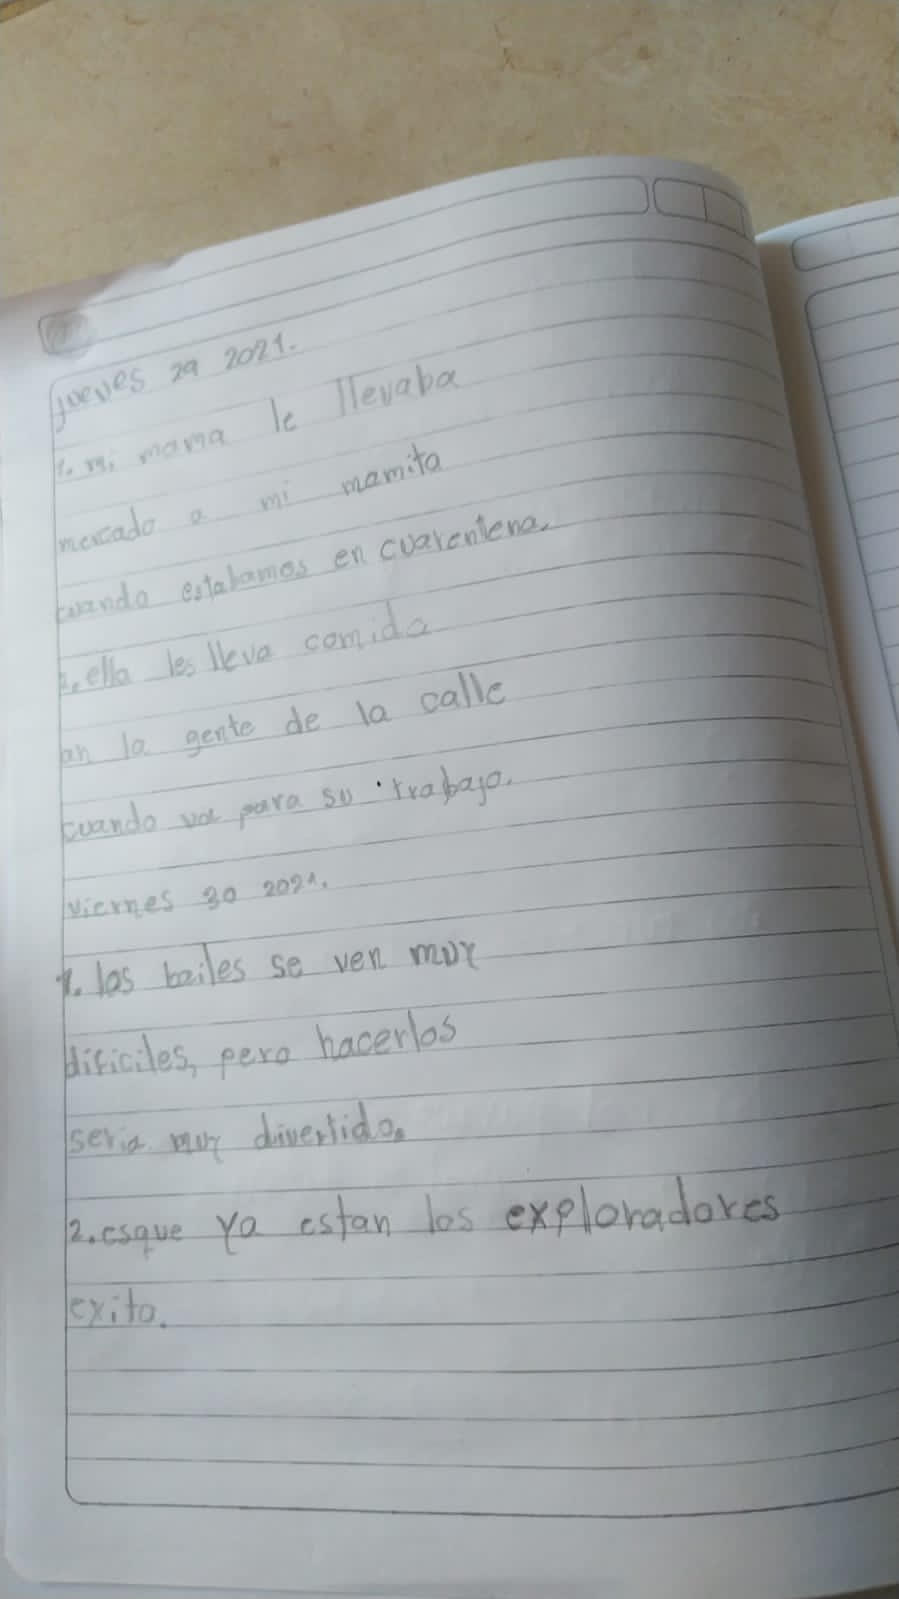 jueves 29 2021.
1. mi mama le llevaba
mercado a mi mamita
cuando estabamos en cuarentena.
2. ella les lleva comida
an la gente de la calle
cuando va para su trabajo.
viernes 30 2021.
1. los bailes se ven muy
dificiles, pero hacerlos
seria muy divertido.
2. esque ya estan los exploradores
exito.